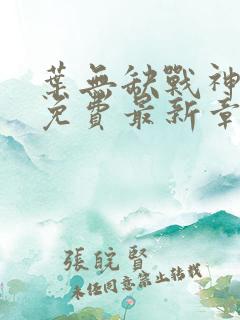 葉無缺戰神
免費最新章
張皖賢
未經同意禁止轉載